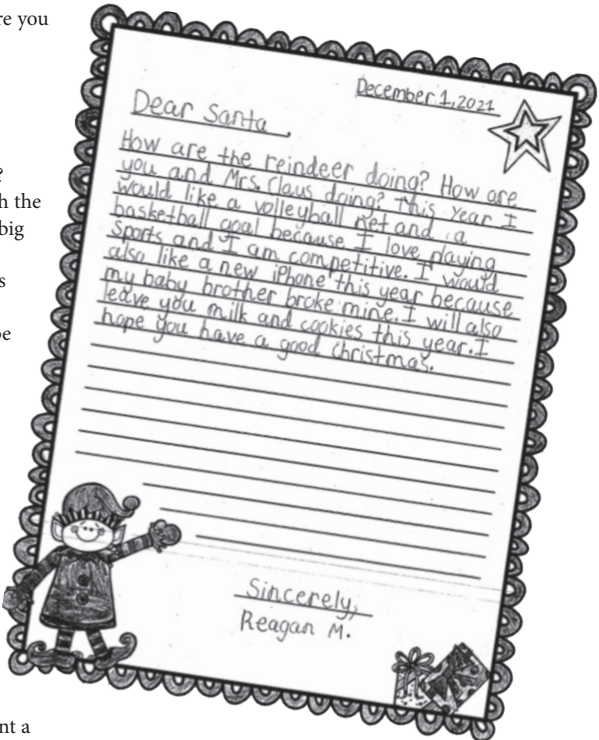 re you
?
h the
big
s
pe
nt a
December 1, 2021
Dear Santa,
How are the reindeer doing? How are
you and Mrs. Claus doing? This year I
would like a volleyball net and a
basketball goal because I love playing
Sports and I am competitive. I would
also like a new iPhone this year because
my baby brother broke mine. I will also
leave you milk and cookies this year. I
hope you have a good Christmas.
Sincerely,
Reagan M.